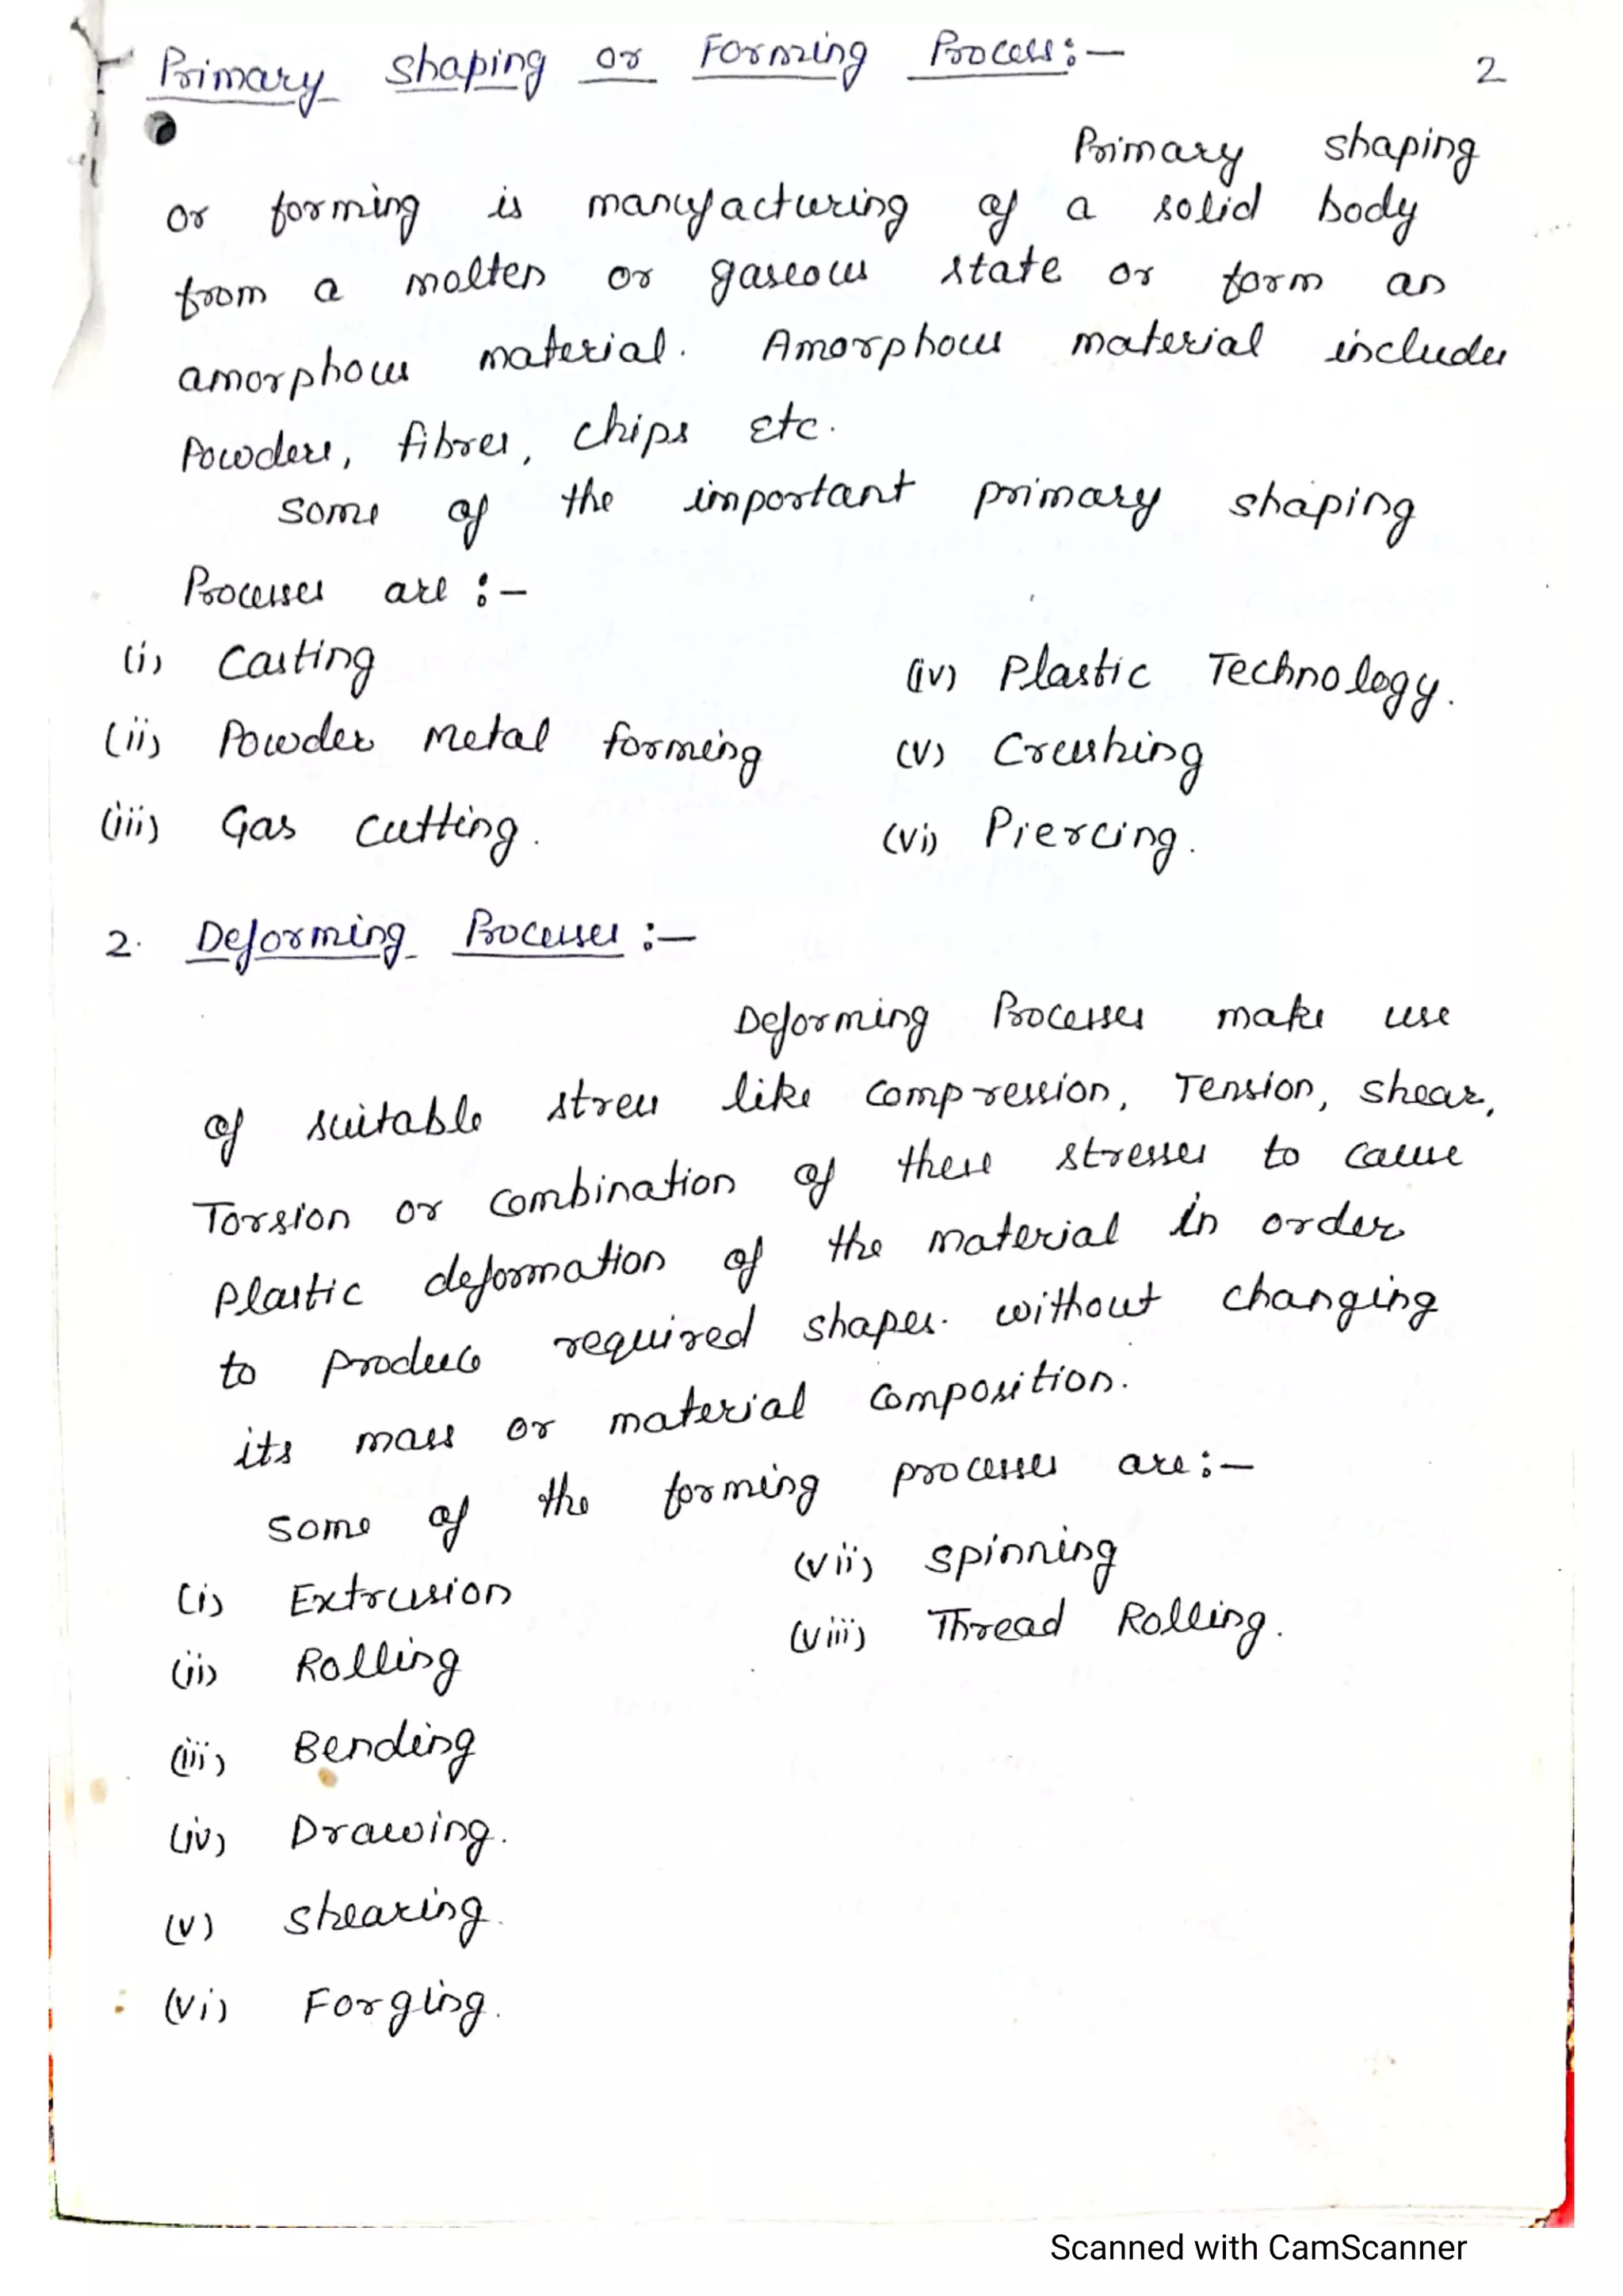 Primary shaping or Forming Process:—
2
Primary shaping
or forming is manufacturing of a solid body
from a molten or gaseous state or form an
amorphous material. Amorphous material includes
Powders, fibres, chips etc.
some of the important primary shaping
Processes are :—
(i) Casting
(ii) Powder metal forming
(iii) Gas cutting.
(iv) Plastic Technology.
(v) Crushing
(vi) Piercing.
2. Deforming Processes :—
Deforming Processes make use
of suitable stress like compression, Tension, shear,
Torsion or combination of these stresses to cause
Plastic deformation of the material in order
to produce required shapes. without changing
its mass or material composition.
some of the forming processes are:—
(i) Extrusion
(ii) Rolling
(iii) Bending
(iv) Drawing.
(v) shearing.
(vi) Forging.
(vii) spinning
(viii) Thread Rolling.
Scanned with CamScanner